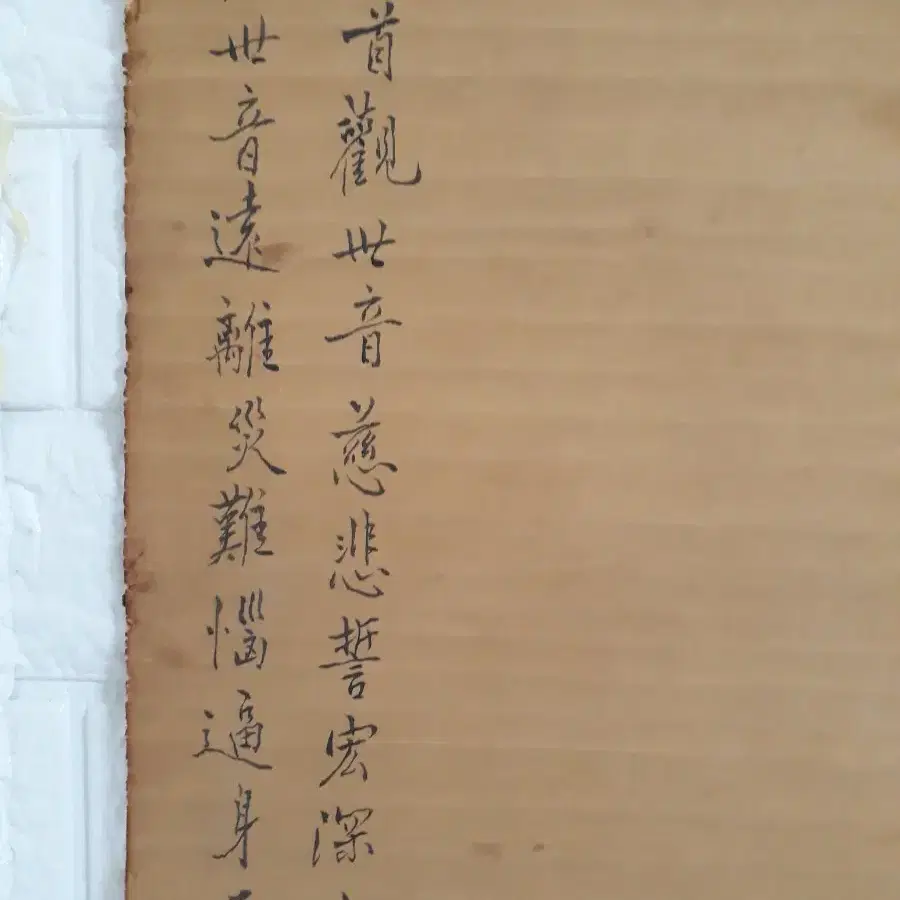 首觀世音慈悲誓宏深
世音遠離災難惱逼身